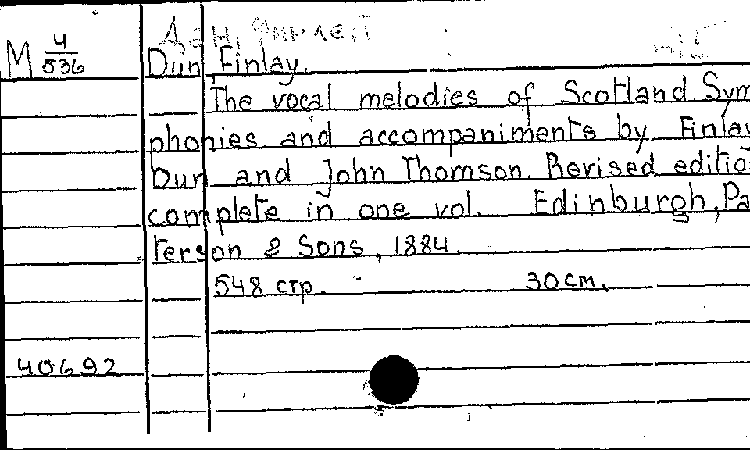 M 4/536
Dun, Finlay.
The vocal melodies of Scotland Sym
phonies and accompaniments by Finlay
Dun and John Thomson. Revised editio
complete in one vol. Edinburgh, Pa
terson & Sons, 1884
548 стр. 30 см.
40692